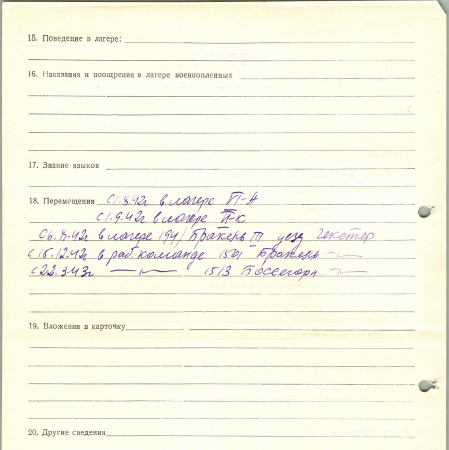 15. Поведение в лагере:
16. Наказания и поощрения в лагере военнопленных
17. Знание языков
18. Перемещения С 1.8.42г в лагере II-А
С 1.9.42г в лагере II-с
С 6.8.42г в лагере 194/ Бракель III уезд Гекстер
с 15.12.42г в раб. команде 1501 Бракель —"—
с 22.3.43г —"— 1513 Боссегорн —"—
19. Вложения в карточку
20. Другие сведения